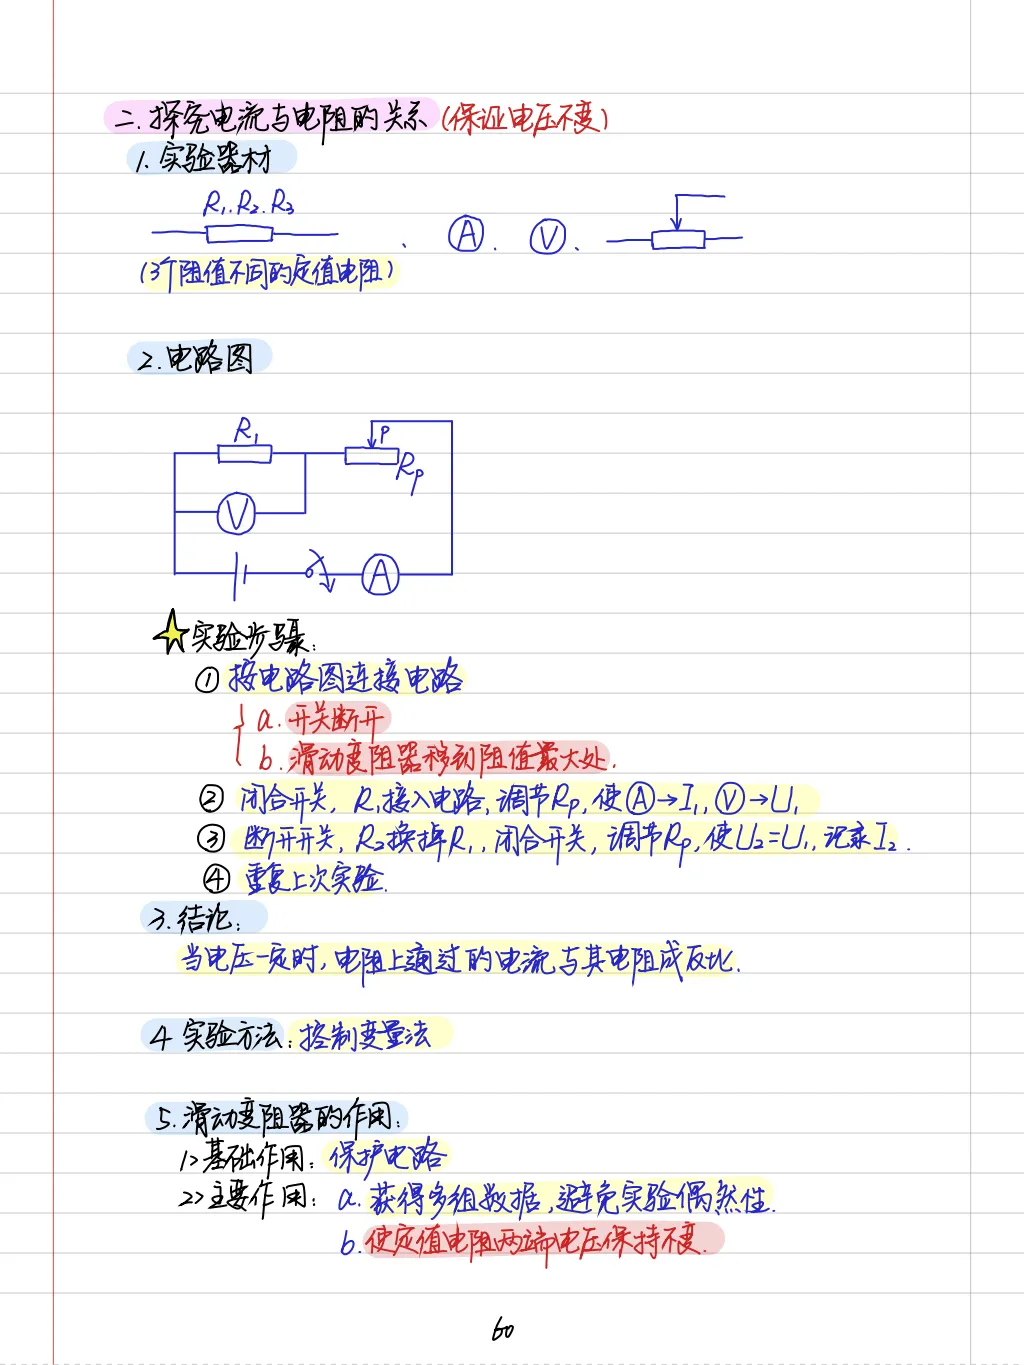 二.探究电流与电阻的关系(保证电压不变)
1.实验器材
R₁.R₂.R₃
、 A . V 、
(3个阻值不同的定值电阻)
2.电路图
R₁ P
Rp
V
A
实验步骤:
① 按电路图连接电路
a.开关断开
b.滑动变阻器移到阻值最大处.
② 闭合开关, R₁接入电路,调节Rp,使Ⓐ→I₁,Ⓥ→U₁
③ 断开开关, R₂换掉R₁,闭合开关,调节Rp,使U₂=U₁,记录I₂.
④ 重复上次实验.
3.结论:
当电压一定时,电阻上通过的电流与其电阻成反比.
4 实验方法:控制变量法
5.滑动变阻器的作用:
1>基础作用:保护电路
2>主要作用: a.获得多组数据,避免实验偶然性.
b.使定值电阻两端电压保持不变.
60